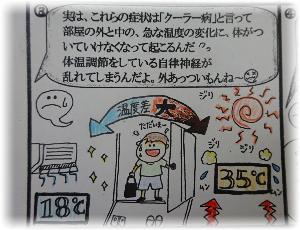 実は、これらの症状は「クーラー病」と言って
部屋の外と中の、急な温度の変化に、体がつ
いていけなくなって起こるんだ
体温調節をしている自律神経が
乱れてしまうんだよ。外あっついもんね〜
温度差 大
ただいまー
ジリ
ジリ
18℃
35℃
ムン
ムン